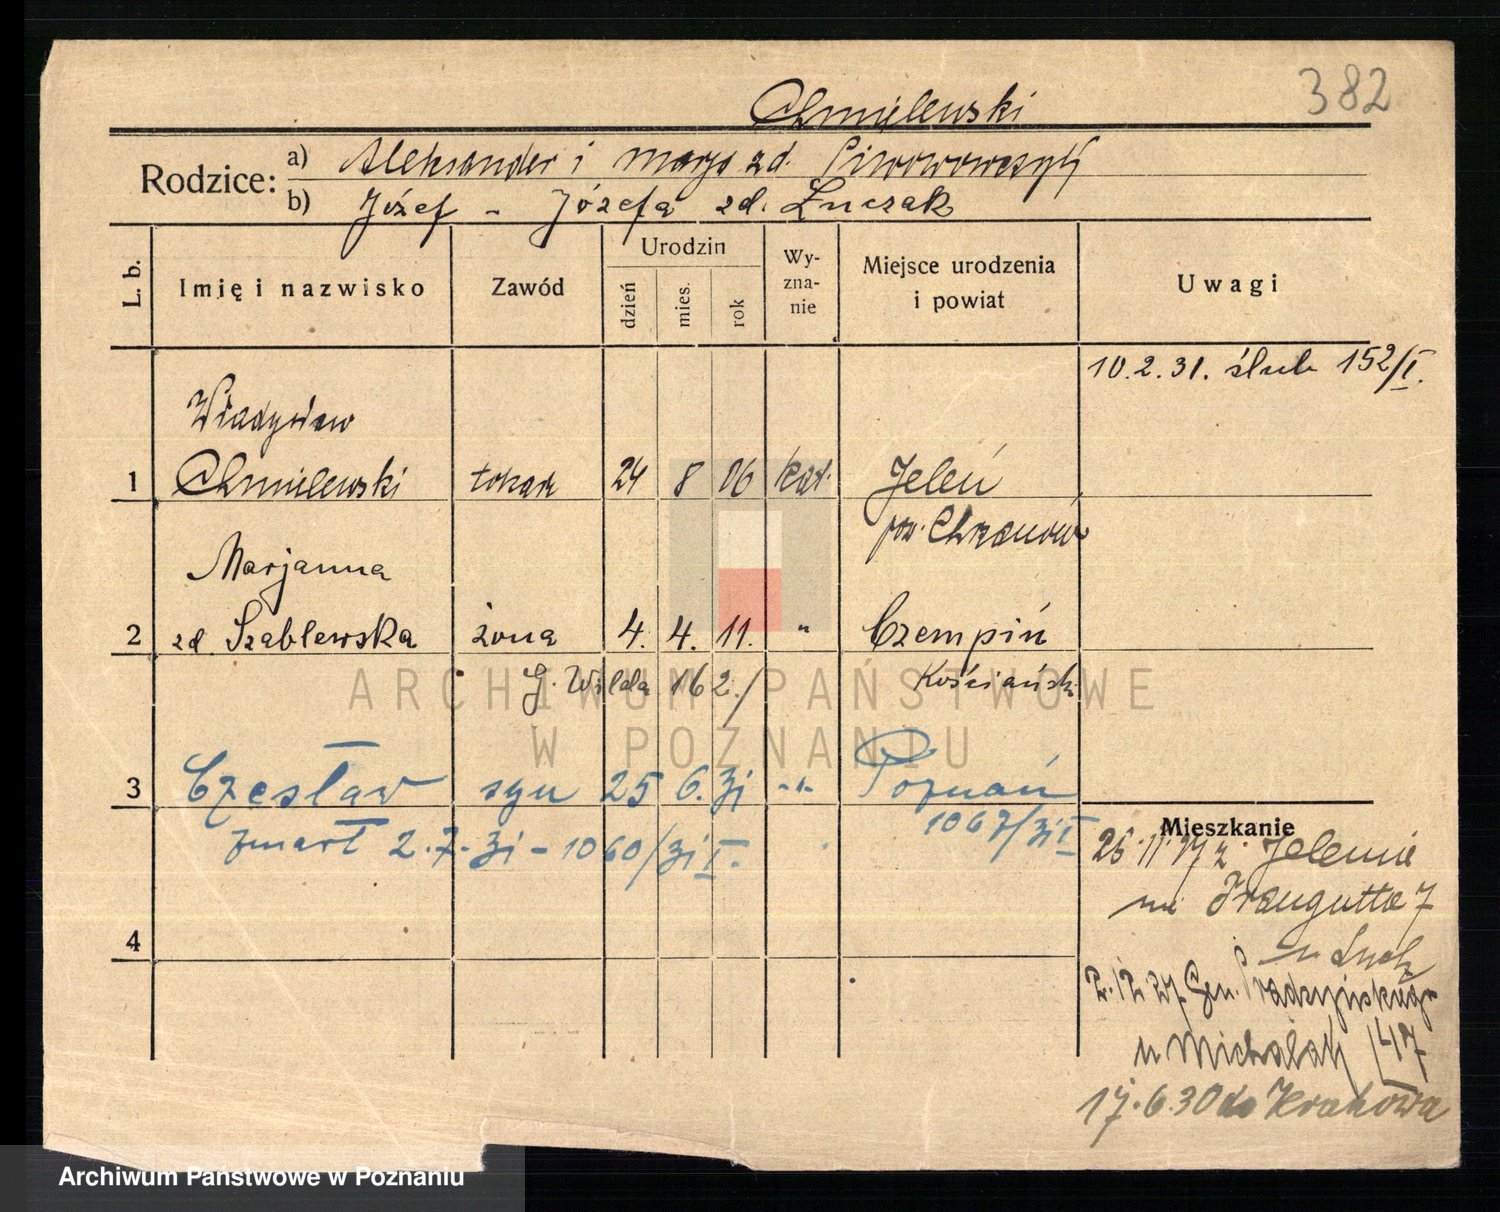 382
Chmielewski
Rodzice: a) Aleksander i Marja zd. Piwowarczyk
b) Józef - Józefa zd. Łuczak
L. b. Imię i nazwisko Zawód Urodzin dzień mies. rok Wyznanie Miejsce urodzenia i powiat Uwagi
10.2.31. ślub 152/I.
Władysław
1 Chmielewski tokarz 24 8 06 kat. Jeleń
pow. Chrzanów
Marjanna
2 zd. Szablewska żona 4. 4. 11. " Czempiń
G. Wilda 162/ Kościański
3 Czesław syn 25 6. 31 -"- Poznań
1067/31 I
zmarł 2.7.31 - 1060/31 I.
Mieszkanie
25.11.27 z Jelenia
Traugutta 7
4
2.12.27 Gen. Prądzyńskiego
u Michalak 47
17.6.30 do Krakowa
ARCHIWUM PAŃSTWOWE
W POZNANIU
Archiwum Państwowe w Poznaniu